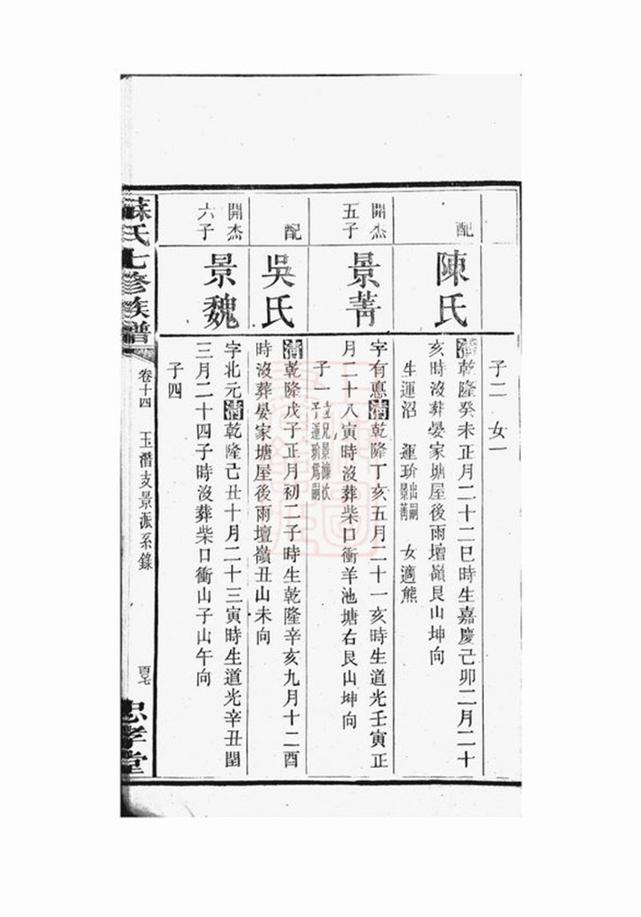 子二 女一
配
陳氏
清乾隆癸未正月二十二巳時生嘉慶己卯二月二十
亥時沒葬晏家塘屋後雨壇嶺艮山坤向
生運沼 運玠出嗣景菁 女適熊
開杰
五子
景菁
字有悳清乾隆丁亥五月二十一亥時生道光壬寅正
月二十八寅時沒葬柴口衝羊池塘右艮山坤向
子一 立兄景濂次
子運玠為嗣
配
吳氏
清乾隆戊子正月初二子時生乾隆辛亥九月十二酉
時沒葬晏家塘屋後雨壇嶺丑山未向
開杰
六子
景魏
字北元清乾隆己丑十月二十三寅時生道光辛丑閏
三月二十四子時沒葬柴口衝山子山午向
子四
蘇氏七修族譜
卷十四 玉潛支景派系錄
忠孝堂